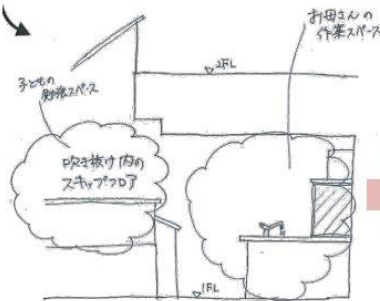 お母さんの
作業スペース
▽2FL
子どもの
勉強スペース
吹き抜け内の
スキップフロア
▽1FL